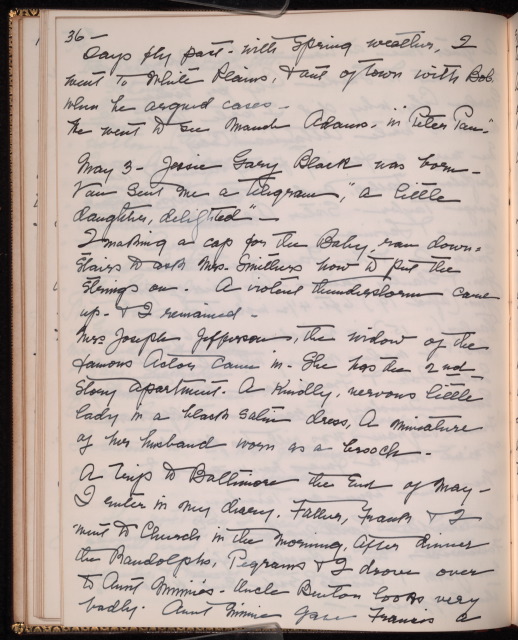 36-
Days fly past - with Spring weather, I
went to White Plains, & out of town with Bob,
when he argued cases -
We went to see Maude Adams - in "Peter Pan".
May 3 - Jessie Gary Black was born -
Van sent me a telegram, "a little
daughter, delighted" -
I making a cap for the Baby, ran down=
stairs to ask Mrs. Smithers how to put the
strings on - A violent thunderstorm came
up - & I remained -
Mrs Joseph Jefferson, the widow of the
famous Actor came in - She has the 2nd
Story apartment - A Kindly, nervous little
lady in a black satin dress, A miniature
of her husband worn as a brooch -
A Trip to Baltimore the End of May -
I enter in my diary. Father, Frank & I
went to Church in the morning. After dinner
the Randolphs, Pegrams & I drove over
to Aunt Minnie's - Uncle Burton looks very
badly - Aunt Minnie gave Francis a